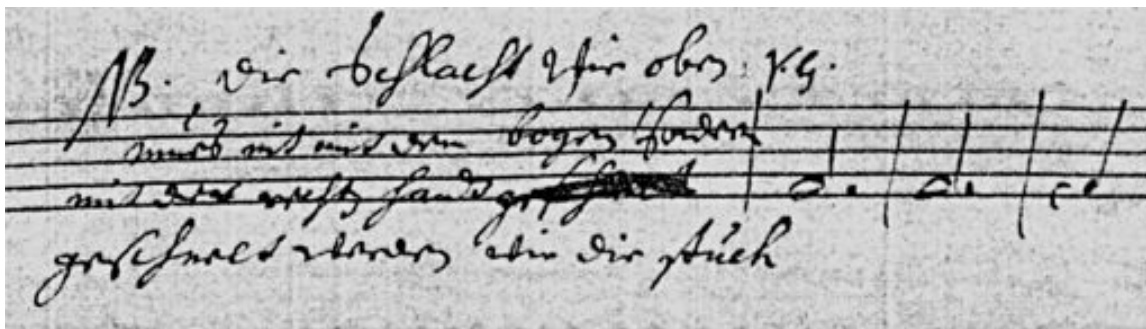 NB. die Schlacht wie oben: p. H.
mues nit mit dem bogen sondern
mit der rechtn handt
geschnelt werden wie die stuckh